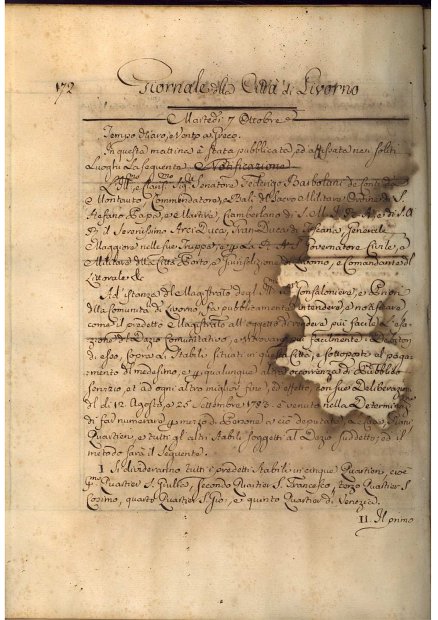 172
Giornale della Città di Livorno
Martedì 7 Ottobre
Tempo chiaro, e Vento a Greco.
In questa mattina è stata pubblicata, ed affissata nei soliti
Luoghi la seguente Notificazione
L'Ill.mo e Clariss.mo Sig.r Senatore Federigo Barbolani de Conti da
Montauto Commendatore, e Balì del Sacro Militare Ordine di S.
Stefano Papa, e Martire, Ciamberlano di S. M.
il Serenissimo Arciduca, Gran Duca di Toscana, Generale
Maggiore nelle sue Truppe, e p. la R. A. S. Governatore Civile, e
Militare della Città, Porto, e Giurisdizione di Livorno, e Comandante del
Littorale &c
Ad istanza del Magistrato degli Gonfaloniere, e Priori
della Comunità di Livorno fa pubblicamente intendere, e notificare
come il predetto Magistrato all'oggetto di rendere più facile l'esa-
zione del Dazio Comunitativo, e ritrovare facilmente i Debitori
di esso, sopra li Stabili situati in questa Città, e sottoposti al paga-
mento di medesimo, e p. qualunque altra occorrenza di Pubblico
servizio, et ad ogni altro miglior fine, ed effetto, con sue Deliberazioni
del dì 12 Agosto, e 25 Settembre 1783 è venuto nella Determinaz.
di far numerare p. mezzo di Persone a ciò deputate
Quartieri, e tutti gli altri Stabili soggetti al Dazio suddetto, ed il
metodo sarà il seguente.
I Si divideranno tutti i predetti Stabili in cinque Quartieri, cioè
p.mo Quartier S. Giulia, secondo Quartier S. Francesco, terzo Quartier S.
Cosimo, quarto Quartier S. Gio:, e quinto Quartier di Venezia.
II. Il primo